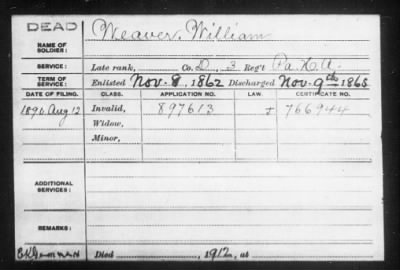 DEAD
Weaver, William
NAME OF
SOLDIER:
SERVICE:
Late rank, Co. D, 3 Reg't Pa. H.A.
TERM OF
SERVICE:
Enlisted Nov. 8, 1862 Discharged Nov. 9th 1865
DATE OF FILING. CLASS. APPLICATION NO. LAW. CERTIFICATE NO.
1890 Aug 12 Invalid, 897613 766944
Widow,
Minor,
ADDITIONAL
SERVICES:
REMARKS:
Died , 1912, at